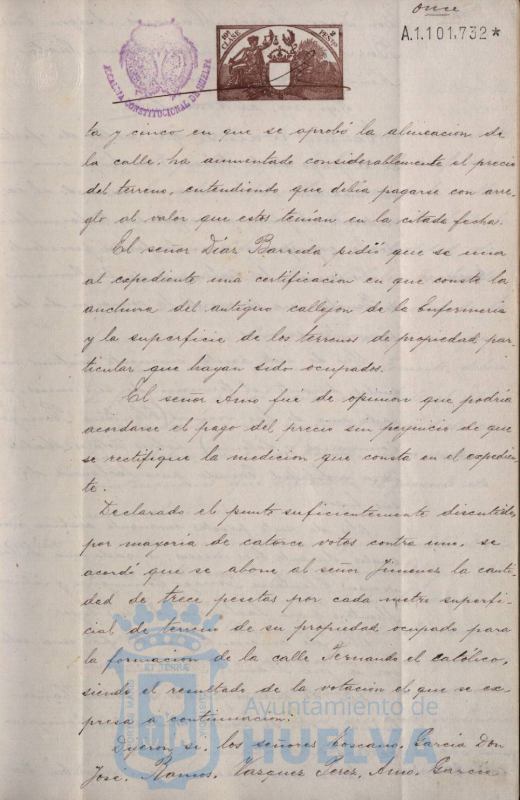 once
A.1.101.732*
10ª CLASE
2 PESETAS
ALCALDIA CONSTITUCIONAL DE HUELVA
ta y cinco en que se aprobó la alineacion de
la calle, ha aumentado considerablemente el precio
del terreno, entendiendo que debia pagarse con arre-
glo al valor que estos tenian en la citada fecha.
El señor Diaz Barreda pidió que se una
al expediente una certificacion en que conste la
anchura del antiguo callejon de la Enfermeria
y la superficie de los terrenos de propiedad par-
ticular que hayan sido ocupados.
El señor Amo fué de opinion que podria
acordarse el pago del precio sin perjuicio de que
se rectifique la medicion que consta en el expedien-
te.
Declarado el punto suficientemente discutido,
por mayoria de catorce votos contra uno, se
acordó que se abone al señor Jimenez la canti-
dad de trece pesetas por cada metro superfi-
cial de terreno de su propiedad ocupado para
la formacion de la calle Fernando el católico,
siendo el resultado de la votacion el que se ex-
presa a continuacion:
Dijeron si, los señores Toscano, Garcia Don
José, Ramos, Vazquez Perez, Amo, Garcia
Ayuntamiento de
HUELVA